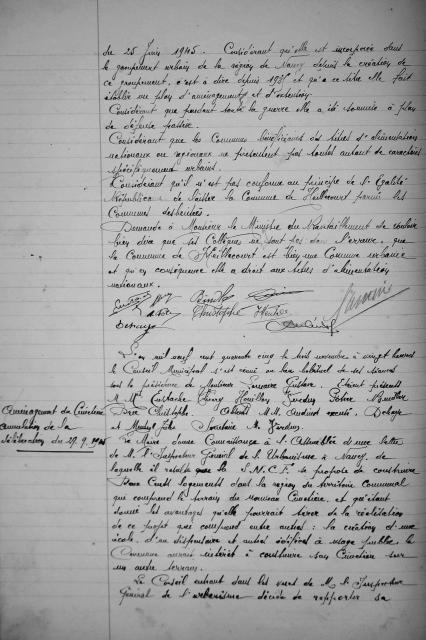 du 25 Juin 1945. Considérant qu'elle est incorporée dans
le groupement urbain de la région de Nancy depuis la création de
ce groupement, c'est à dire depuis qu'à ce titre elle fait
établir un plan d'aménagement et d'extention.
Considérant que pendant toute la guerre elle a été soumise à plan
de défense passive.
Considérant que les Communes bénéficiaires des titres d'alimentation
nationaux ou régionaux ne présentent pas toutes autant de caractère
spécifiquement urbains.
Considérant qu'il n'est pas conforme au principe de l'Egalité
Républicaine de laisser la Commune de Heillecourt parmi les
Communes déshéritées.
Demande à Monsieur le Ministre du Ravitaillement de vouloir
bien dire que ses Collègues ne sont pas dans l'erreur, que
la Commune de Heillecourt est bien une Commune urbaine
et qu'en conséquence elle a droit aux titres d'alimentation
nationaux.
Christophe
L'an mil neuf cent quarante cinq le trois novembre à vingt heures
le Conseil Municipal s'est réuni au lieu habituel de ses séances
sous la présidence de Monsieur Gustave. Etaient présents
M. M. Eustache Thiéry Houillon Jordy
Christophe. Absents M. M. excusé.
et Secrétaire M.
Aménagement du Cimetière
annulation de la
délibération du 27.9.1945
Le Maire donne Connaissance à l'Assemblée d'une lettre
de M. l'Inspecteur Général de l'Urbanisme à Nancy, de
laquelle il résulte que la S.N.C.F. se propose de construire
Deux Cents logements dans la région du territoire Communal
que comprend le terrain du nouveau Cimetière, et qu'étant
donné les avantages qu'elle pourrait tirer de la réalisation
de ce projet qui comprend entre autres : la création d'une
école, d'un dispensaire et autres édifices à usage public, la
Commune aurait intérêt à construire son Cimetière sur
un autre terrain.
Le Conseil entrant dans les vues de M. l'Inspecteur
Général de l'urbanisme décide de rapporter sa